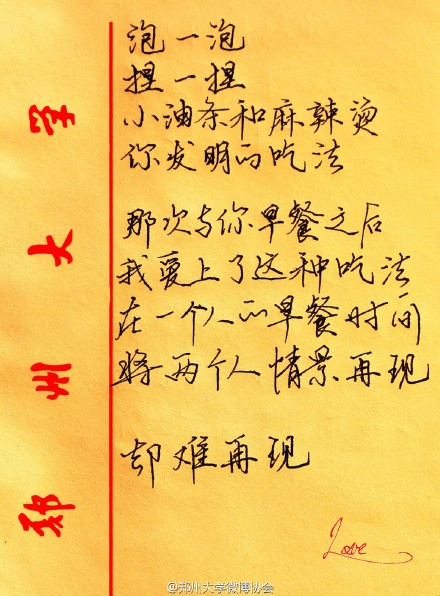 泡一泡
捏一捏
小油条和麻辣烫
你发明的吃法
那次与你早餐之后
我爱上了这种吃法
在一个人的早餐时间
将两个人情景再现
却难再现
Love
郑州大学
@郑州大学微博协会